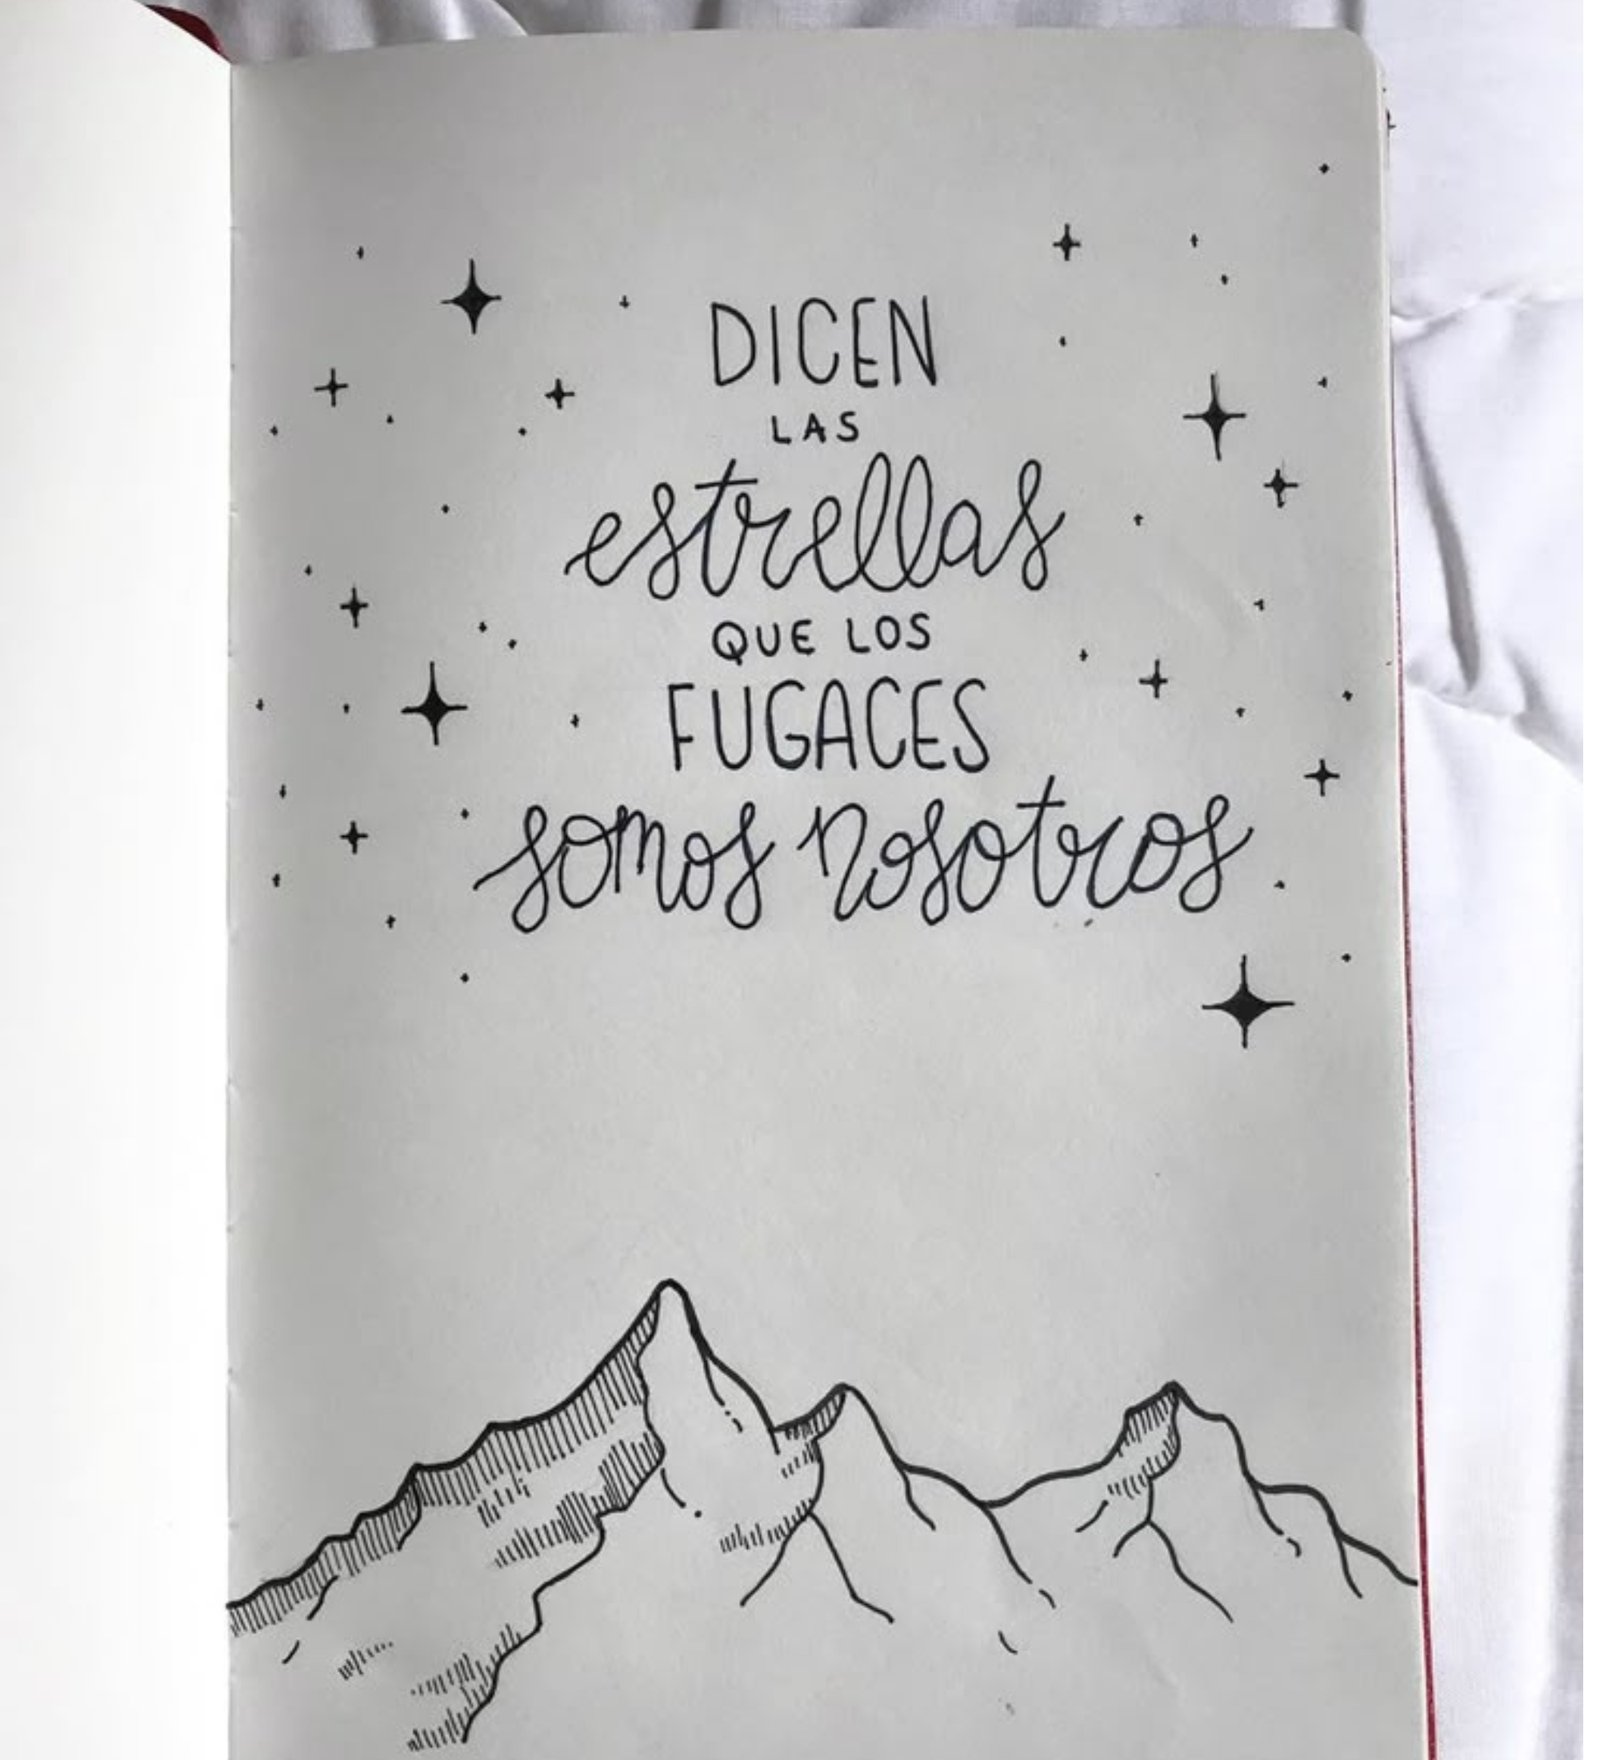 DICEN
LAS
estrellas
QUE LOS
FUGACES
somos nosotros